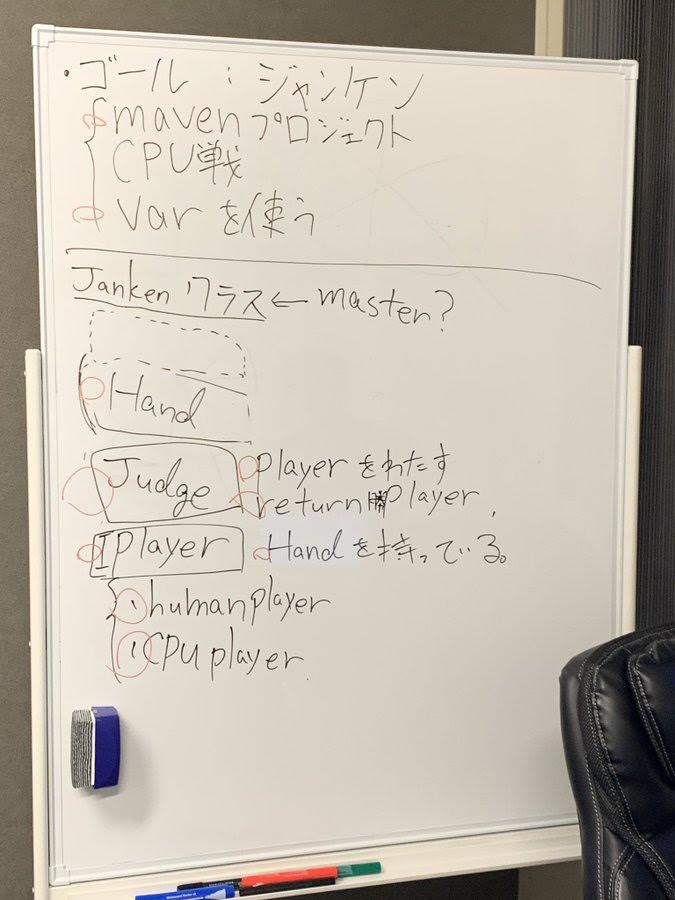 ・ゴール：ジャンケン
mavenプロジェクト
CPU戦
varを使う
Janken クラス ← master?
Hand
Judge Playerをわたす
return 勝Player,
IPlayer Handを持っている。
・humanplayer
・CPU player